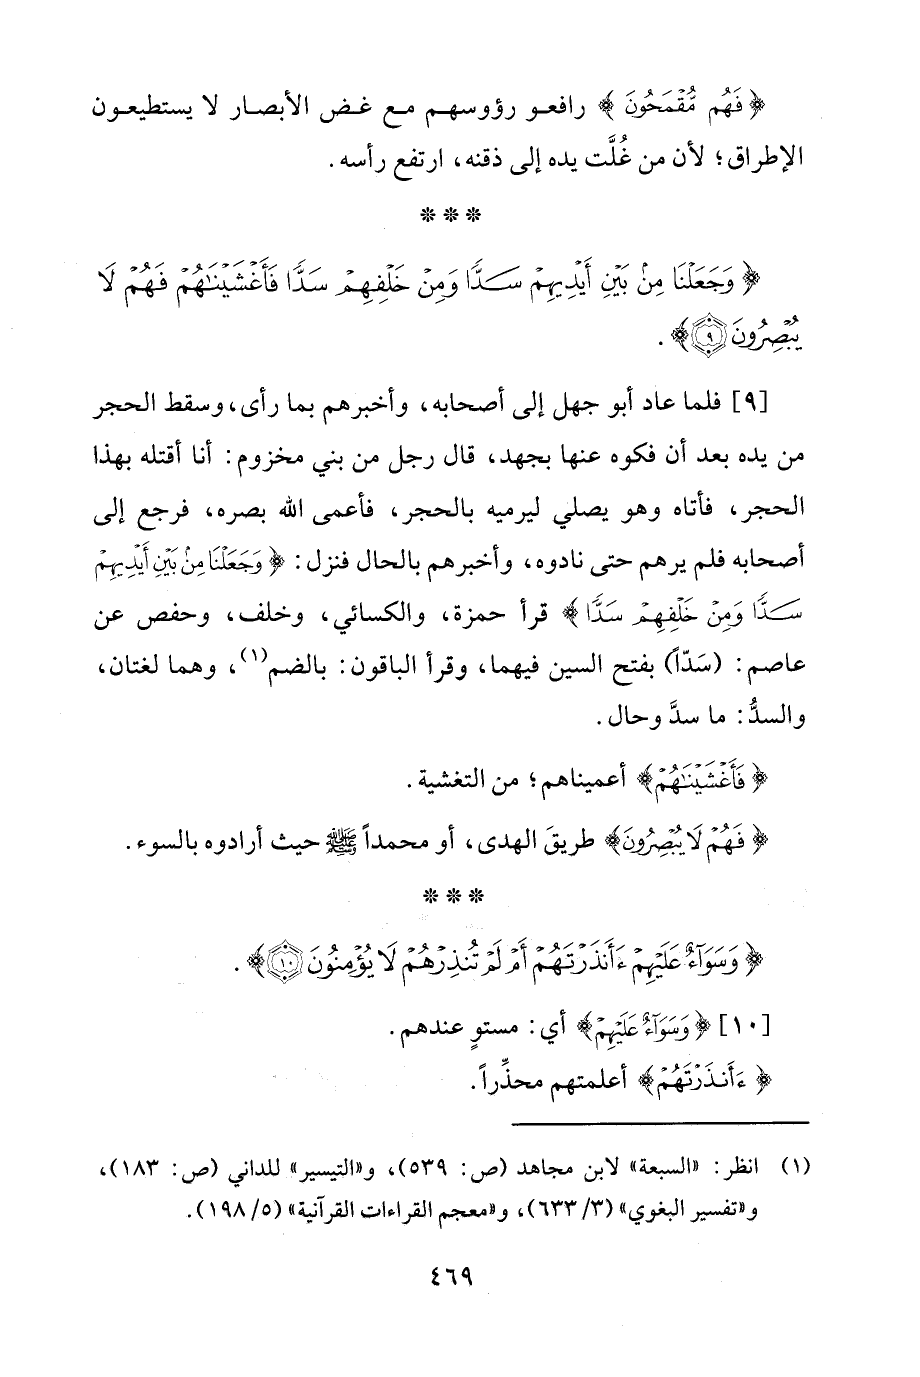 ﴿فَهُم مُّقْمَحُونَ﴾ رافعو رؤوسهم مع غض الأبصار لا يستطيعون
الإطراق؛ لأن من غُلَّت يده إلى ذقنه، ارتفع رأسه.
* * *
﴿وَجَعَلْنَا مِنۢ بَيْنِ أَيْدِيهِمْ سَدًّا وَمِنْ خَلْفِهِمْ سَدًّا فَأَغْشَيْنَٰهُمْ فَهُمْ لَا
يُبْصِرُونَ ٩﴾.
[٩] فلما عاد أبو جهل إلى أصحابه، وأخبرهم بما رأى، وسقط الحجر
من يده بعد أن فكوه عنها بجهد، قال رجل من بني مخزوم: أنا أقتله بهذا
الحجر، فأتاه وهو يصلي ليرميه بالحجر، فأعمى الله بصره، فرجع إلى
أصحابه فلم يرهم حتى نادوه، وأخبرهم بالحال فنزل: ﴿وَجَعَلْنَا مِنۢ بَيْنِ أَيْدِيهِمْ
سَدًّا وَمِنْ خَلْفِهِمْ سَدًّا﴾ قرأ حمزة، والكسائي، وخلف، وحفص عن
عاصم: (سَدّاً) بفتح السين فيهما، وقرأ الباقون: بالضم(١)، وهما لغتان،
والسدُّ: ما سدَّ وحال.
﴿فَأَغْشَيْنَٰهُمْ﴾ أعميناهم؛ من التغشية.
﴿فَهُمْ لَا يُبْصِرُونَ﴾ طريقَ الهدى، أو محمداً ﷺ حيث أرادوه بالسوء.
* * *
﴿وَسَوَآءٌ عَلَيْهِمْ ءَأَنذَرْتَهُمْ أَمْ لَمْ تُنذِرْهُمْ لَا يُؤْمِنُونَ ١٠﴾.
[١٠] ﴿وَسَوَآءٌ عَلَيْهِمْ﴾ أي: مستوٍ عندهم.
﴿ءَأَنذَرْتَهُمْ﴾ أعلمتهم محذِّراً.
(١) انظر: «السبعة» لابن مجاهد (ص: ٥٣٩)، و«التيسير» للداني (ص: ١٨٣)،
و«تفسير البغوي» (٣/ ٦٣٣)، و«معجم القراءات القرآنية» (٥/ ١٩٨).
٤٦٩